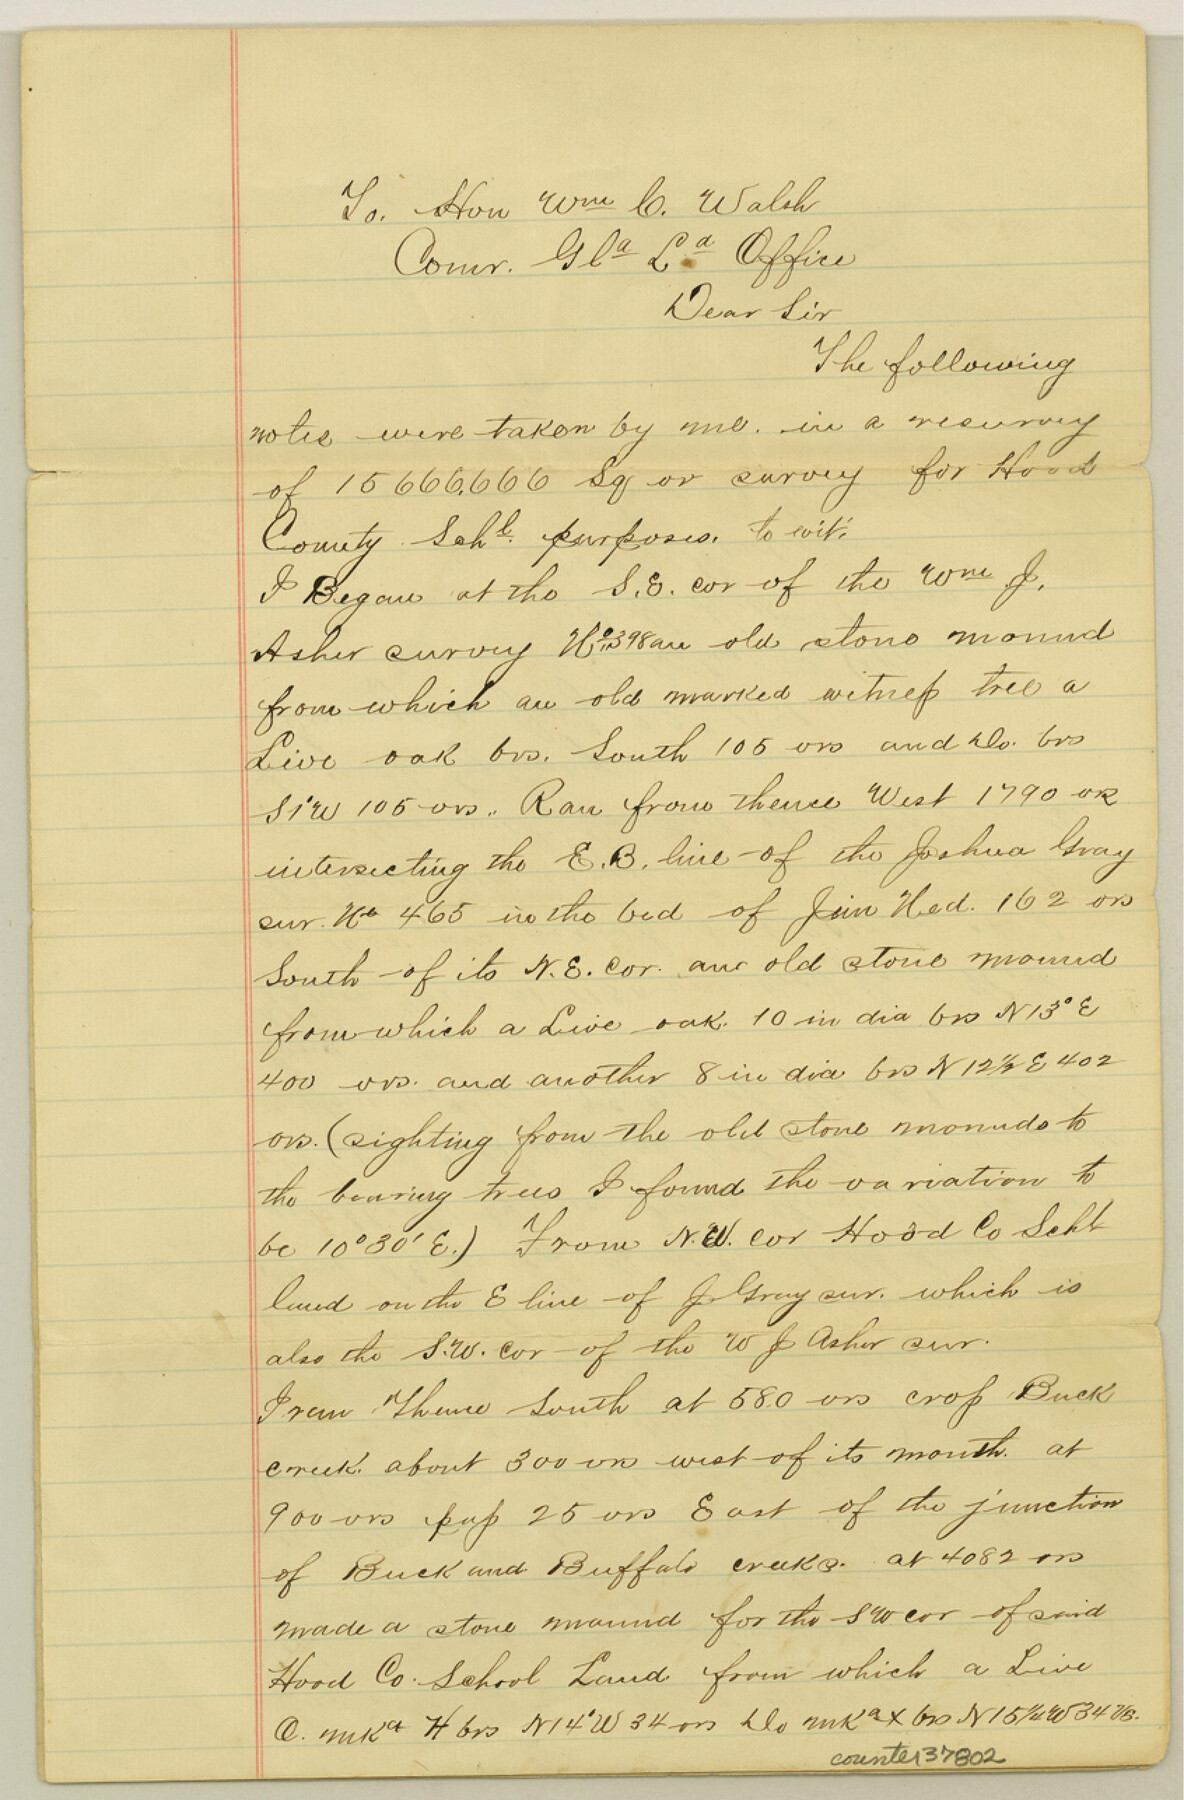 To. Hon Wm C. Walsh
Comr. Gl a Ld Office
Dear Sir
The following
notes were taken by me. in a resurvey
of 15 666,666 Sq vr survey for Hood
County Schl. purposes. to wit:
I Began at the S.E. cor of the Wm J.
Asher survey No 398 an old stone mound
from which an old marked witness tree a
Live oak brs. South 105 vrs and Do. brs
S1°W 105 vrs.. Ran from thence West 1790 vrs
intersecting the E.B. line of the Joshua Gray
sur. No 465 in the bed of Jim Ned. 162 vrs
South of its N.E. cor. an old stone mound
from which a Live oak. 10 in dia brs N13°E
400 vrs. and another 8 in dia brs N12½E 402
vrs. (sighting from the old stone mounds to
the bearing trees I found the variation to
be 10°30' E.) From N.W. cor Hood Co Schl
land on the E line of J Gray sur. which is
also the S.W. cor of the W J Asher sur.
I ran Thence South at 580 vrs cross Buck
creek. about 300 vrs west of its mouth. at
900 vrs pass 25 vrs East of the junction
of Buck and Buffalo creeks. at 4082 vrs
made a stone mound for the S W cor of said
Hood Co. School Land from which a Live
O. mkd H brs N14°W 34 vrs Do mkd X brs N15¼W 34 vrs.
counter 37802